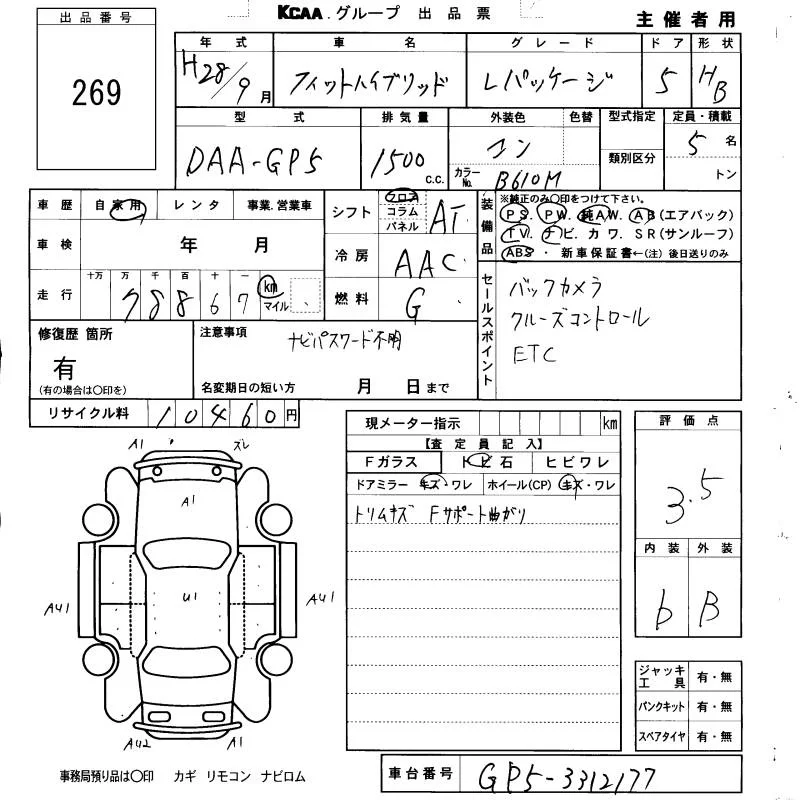 KCAA.グループ 出品票
主催者用
出品番号
269
年式 車名 グレード ドア 形状
H28/9月 フィットハイブリッド Lパッケージ 5 HB
型式 排気量 外装色 色替 型式指定 定員・積載
DAA-GP5 1500c.c. コン 5名
カラーNo. B610M 類別区分 トン
車歴 自家用 レンタ 事業.営業車
シフト フロア コラム パネル AT
装備品 ※純正のみ〇印をつけて下さい。
PS. PW. 純AW. AB(エアバック)
TV. ナビ. カワ. SR(サンルーフ)
ABS・新車保証書←(注)後日送りのみ
車検 年 月
冷房 AAC
走行 十万 万 千 百 十 一
78867 km マイル
燃料 G
セールスポイント
バックカメラ
クルーズコントロール
ETC
修復歴 箇所
有
(有の場合は〇印を)
注意事項 ナビパスワード不明
名変期日の短い方 月 日まで
リサイクル料 10460円
現メーター指示 km
【査定員記入】
Fガラス トビ石 ヒビワレ
ドアミラー キズ・ワレ ホイール(CP) キズ・ワレ
トリムキズ Fサポート曲がり
評価点
3.5
内装 外装
b B
A1 ズレ
A1
AU1 U1 AU1
AU2 A1
ジャッキ工具 有・無
パンクキット 有・無
スペアタイヤ 有・無
事務局預り品は〇印 カギ リモコン ナビロム
車台番号 GP5-3312177